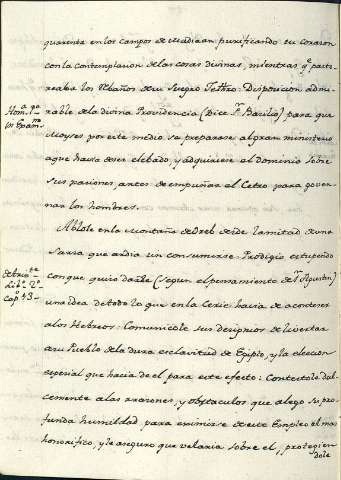 quarenta en los campos de Madiaan purificando su corason
con la contemplacion de las cosas divinas, mientras q.e pasto
reaba los rebaños de su Suegro Jethro: Disposicion admi
rable de la divina Providencia (dice S.n Basilio) para que
Hom.a 1.a
Moyses por este medio se preparase al gran ministerio
aque havia de ser elebado, y adquiriese el dominio sobre
sus pasiones, antes de empuñar el Cetro para gover
nar los hombres.
Ablole en la Montaña de Oreb desde la mitad de una
Sarsa que ardia sin consumirse: Prodigio estupendo
con que quiso darle (segun el pensamiento de S.n Agustin)
Lib.o 2.o
Cap.o 13
una idea de todo lo que en la Cerie havia de acontecer
a los Hebreos: Comunicole sus designios de livertar
a su Pueblo de la dura esclavitud de Egipto, y la eleccion
especial que hacia de el para este efecto: Contestole dul
cemente a las rasones, y obstaculos que alego su pro
funda humildad para eximirse de este Empleo el mas
honorifico, y le aseguro que velaria sobre el, protegien
dole